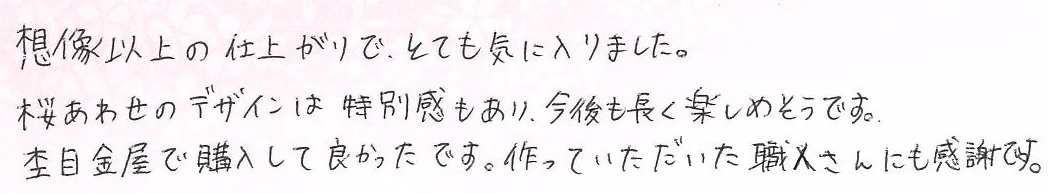 想像以上の仕上がりで、とても気に入りました。
桜あわせのデザインは特別感もあり、今後も長く楽しめそうです。
杢目金屋で購入して良かったです。作っていただいた職人さんにも感謝です。